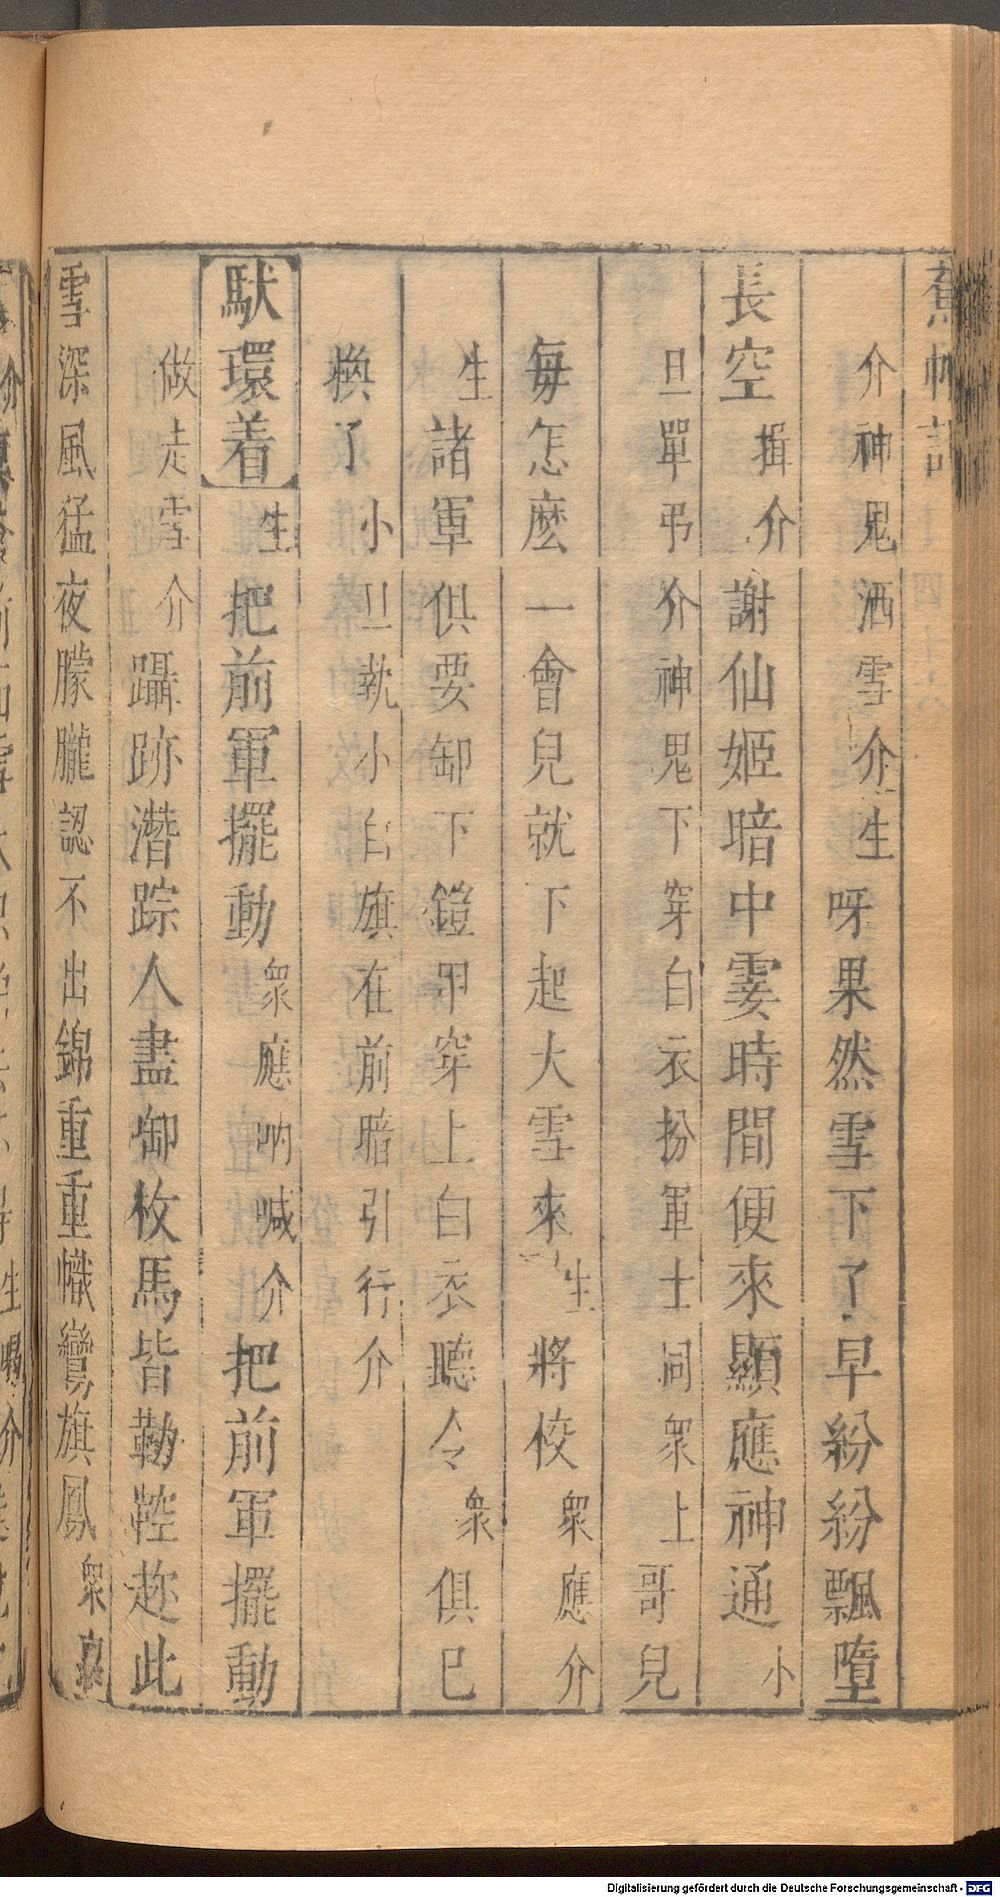 蕉帕記
介神鬼洒雪介生呀果然雪下了早紛紛飄墮
長空揖介謝仙姬暗中霎時間便來顯應神通小
旦單弔介神鬼下穿白衣扮軍士同衆上哥兒
每怎麽一會兒就下起大雪來生將校衆應介
生諸軍俱要卸下鎧甲穿上白衣聽令衆俱已
換了小旦執小白旗在前暗引行介
馱環着生把前軍擺動衆應吶喊介把前軍擺動
做走雪介躡跡潛踪人盡啣枚馬皆勒鞚趂此
雪深風猛夜朦朧認不出錦重重幟鸞旗鳳衆
Digitalisierung gefördert durch die Deutsche Forschungsgemeinschaft - DFG